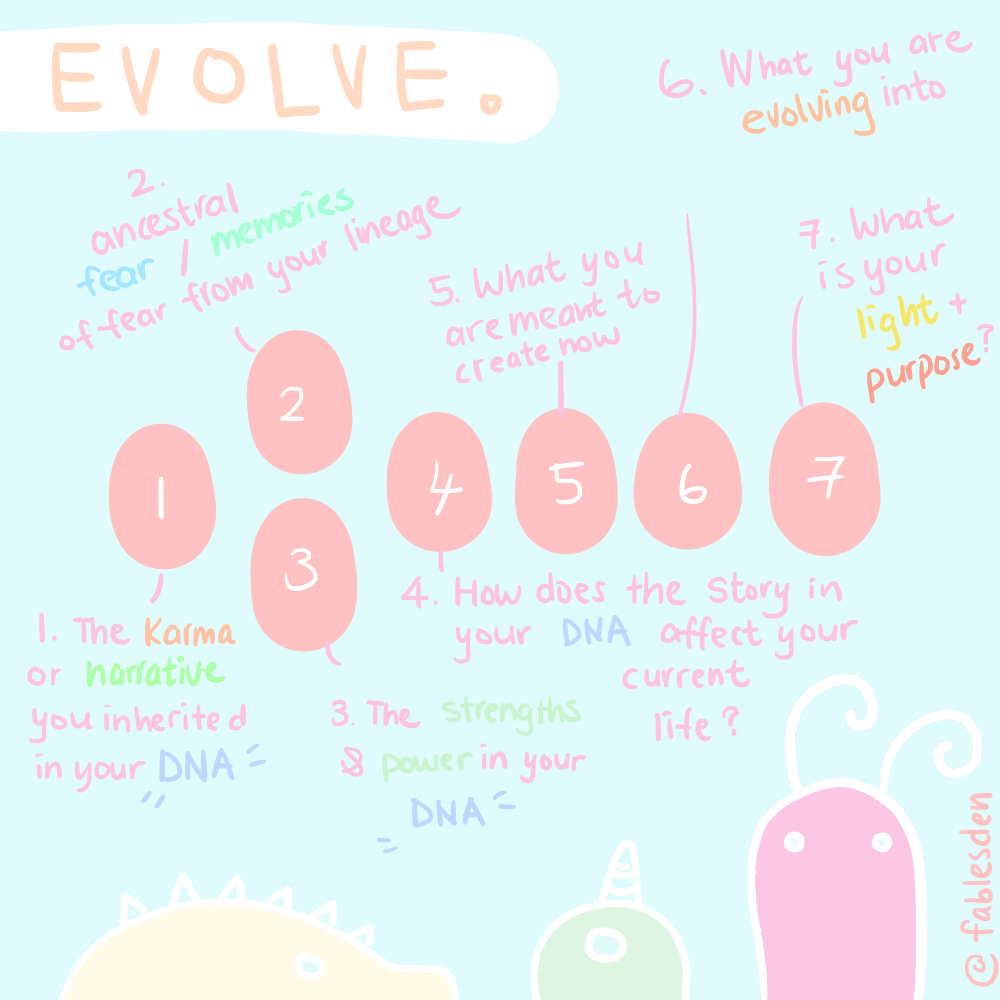 EVOLVE.
6. What you are
evolving into
2.
ancestral
fear / memories
of fear from your lineage
5. What you
are meant to
create now
7. What
is your
light +
purpose?
1
2
3
4
5
6
7
1. The Karma
or narrative
you inherited
in your DNA
3. The strengths
& power in your
DNA
4. How does the story in
your DNA affect your
current
life?
@fablesden